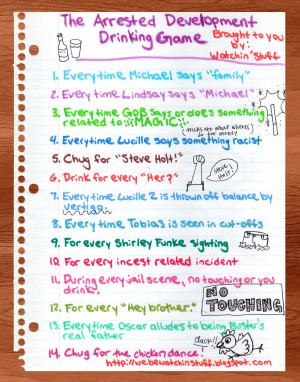 The Arrested Development
Drinking Game
Brought to you
by:
Watchin' Stuff
1. Everytime Michael says "family"
2. Every time Lindsay says "Michael"
3. Every time GOB says or does something
related to MAGIC
(tricks are what whores
do for money
4. Everytime Lucille says something racist
5. Chug for "Steve Holt!"
Steve
Holt!
6. Drink for every "Her?"
7. Every time Lucille 2 is thrown off balance by
vertigo
8. Every time Tobias is seen in cut-offs
9. For every Shirley Funke sighting
10. For every incest related incident
11. During every jail scene, no touching or you
drink.
NO
TOUCHING
12. For every "Hey brother."
13. Everytime Oscar alludes to being Buster's
real father
14. Chug for the chicken dance!
http://webewatchinstuff.blogspot.com